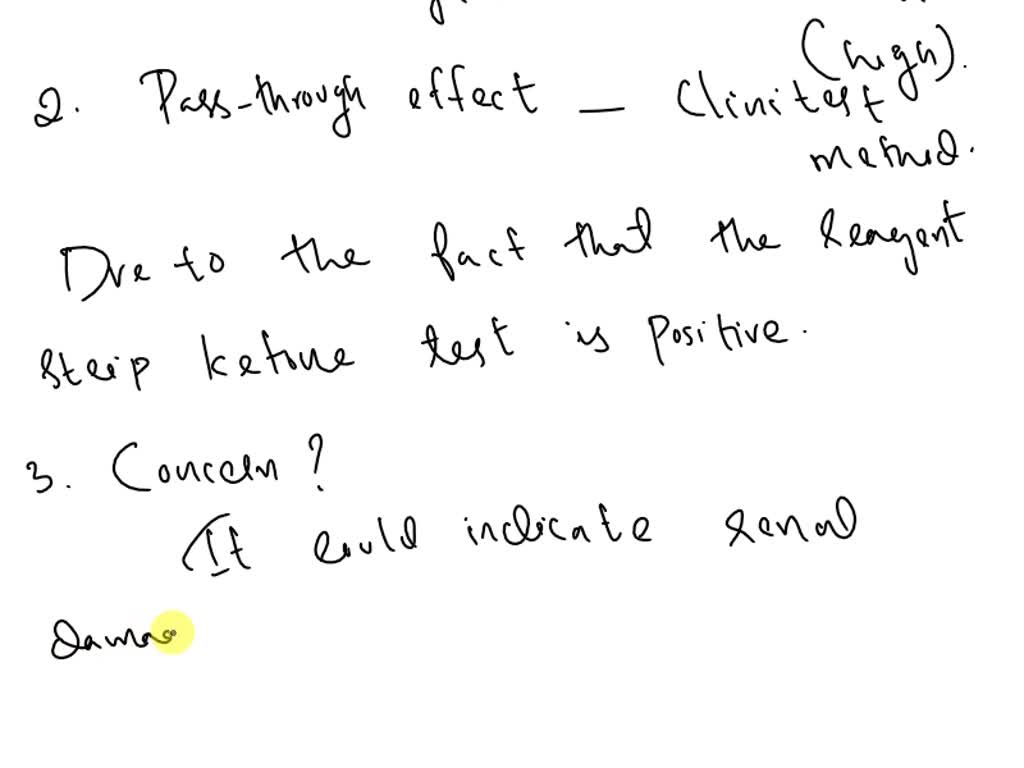 (high).
2. Pass-through effect - Clinitest
method.
Due to the fact that the reagent
strip ketone test is positive.
3. Concern?
It could indicate renal